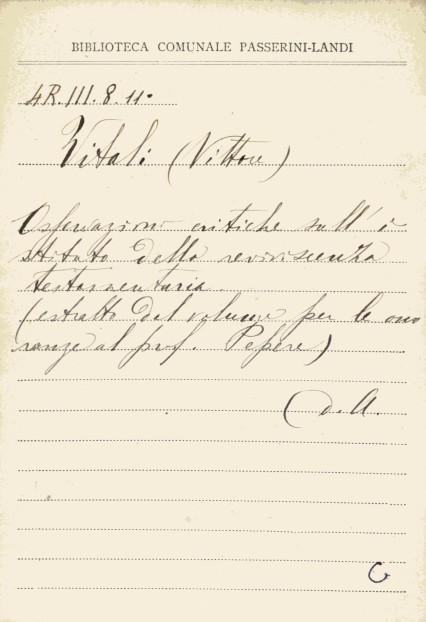 BIBLIOTECA COMUNALE PASSERINI-LANDI
4R.III.8.11.
Vitali (Vittore)
Osservazioni critiche sull' i
stituto della reviviscenza
testamentaria.
(estratto dal volume per le ono
ranze al prof. Pepere)
(d. A.
C